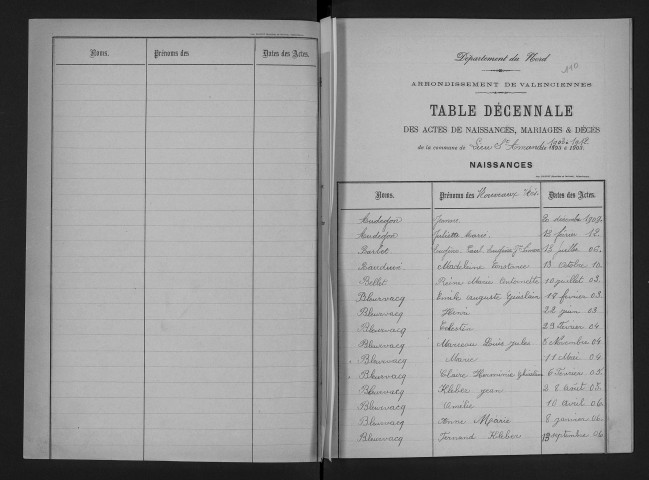 Noms. Prénoms des Dates des Actes.
Département du Nord
110
ARRONDISSEMENT DE VALENCIENNES
TABLE DÉCENNALE
DES ACTES DE NAISSANCES, MARIAGES & DÉCÈS
de la commune de Lieu St Amand 1903 à 1912
NAISSANCES
Noms. Prénoms des Nouveaux Nés. Dates des Actes.
Jeanne 20 décembre 1909.
Juliette Marie 12 février 12.
Barbet Eugène Paul juillet 05.
Madeleine Constance 13 Octobre 10.
Bellet Reine Marie Antoinette 10 juillet 03.
Bleuvacq Emile Auguste Ghislain 18 février 03.
Bleuvacq Henri 22 juin 03
Bleuvacq Célestin 29 février 04.
Bleuvacq Marceau Louis Jules 5 Novembre 04
Bleuvacq Marie 11 Mai 04.
Bleuvacq Claire Herminie Ghislaine 6 février 05.
Bleuvacq Kléber Jean 2 Août 05.
Bleuvacq Emilie 10 avril 06.
Bleuvacq Anne Marie 8 janvier 06.
Bleuvacq Fernand Kléber 19 septembre 06.